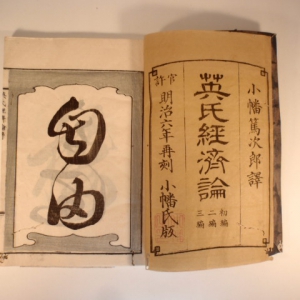 小幡篤次郎譯
英氏經濟論
初編
二編
三編
官許
明治六年再刻
小幡氏版
自由